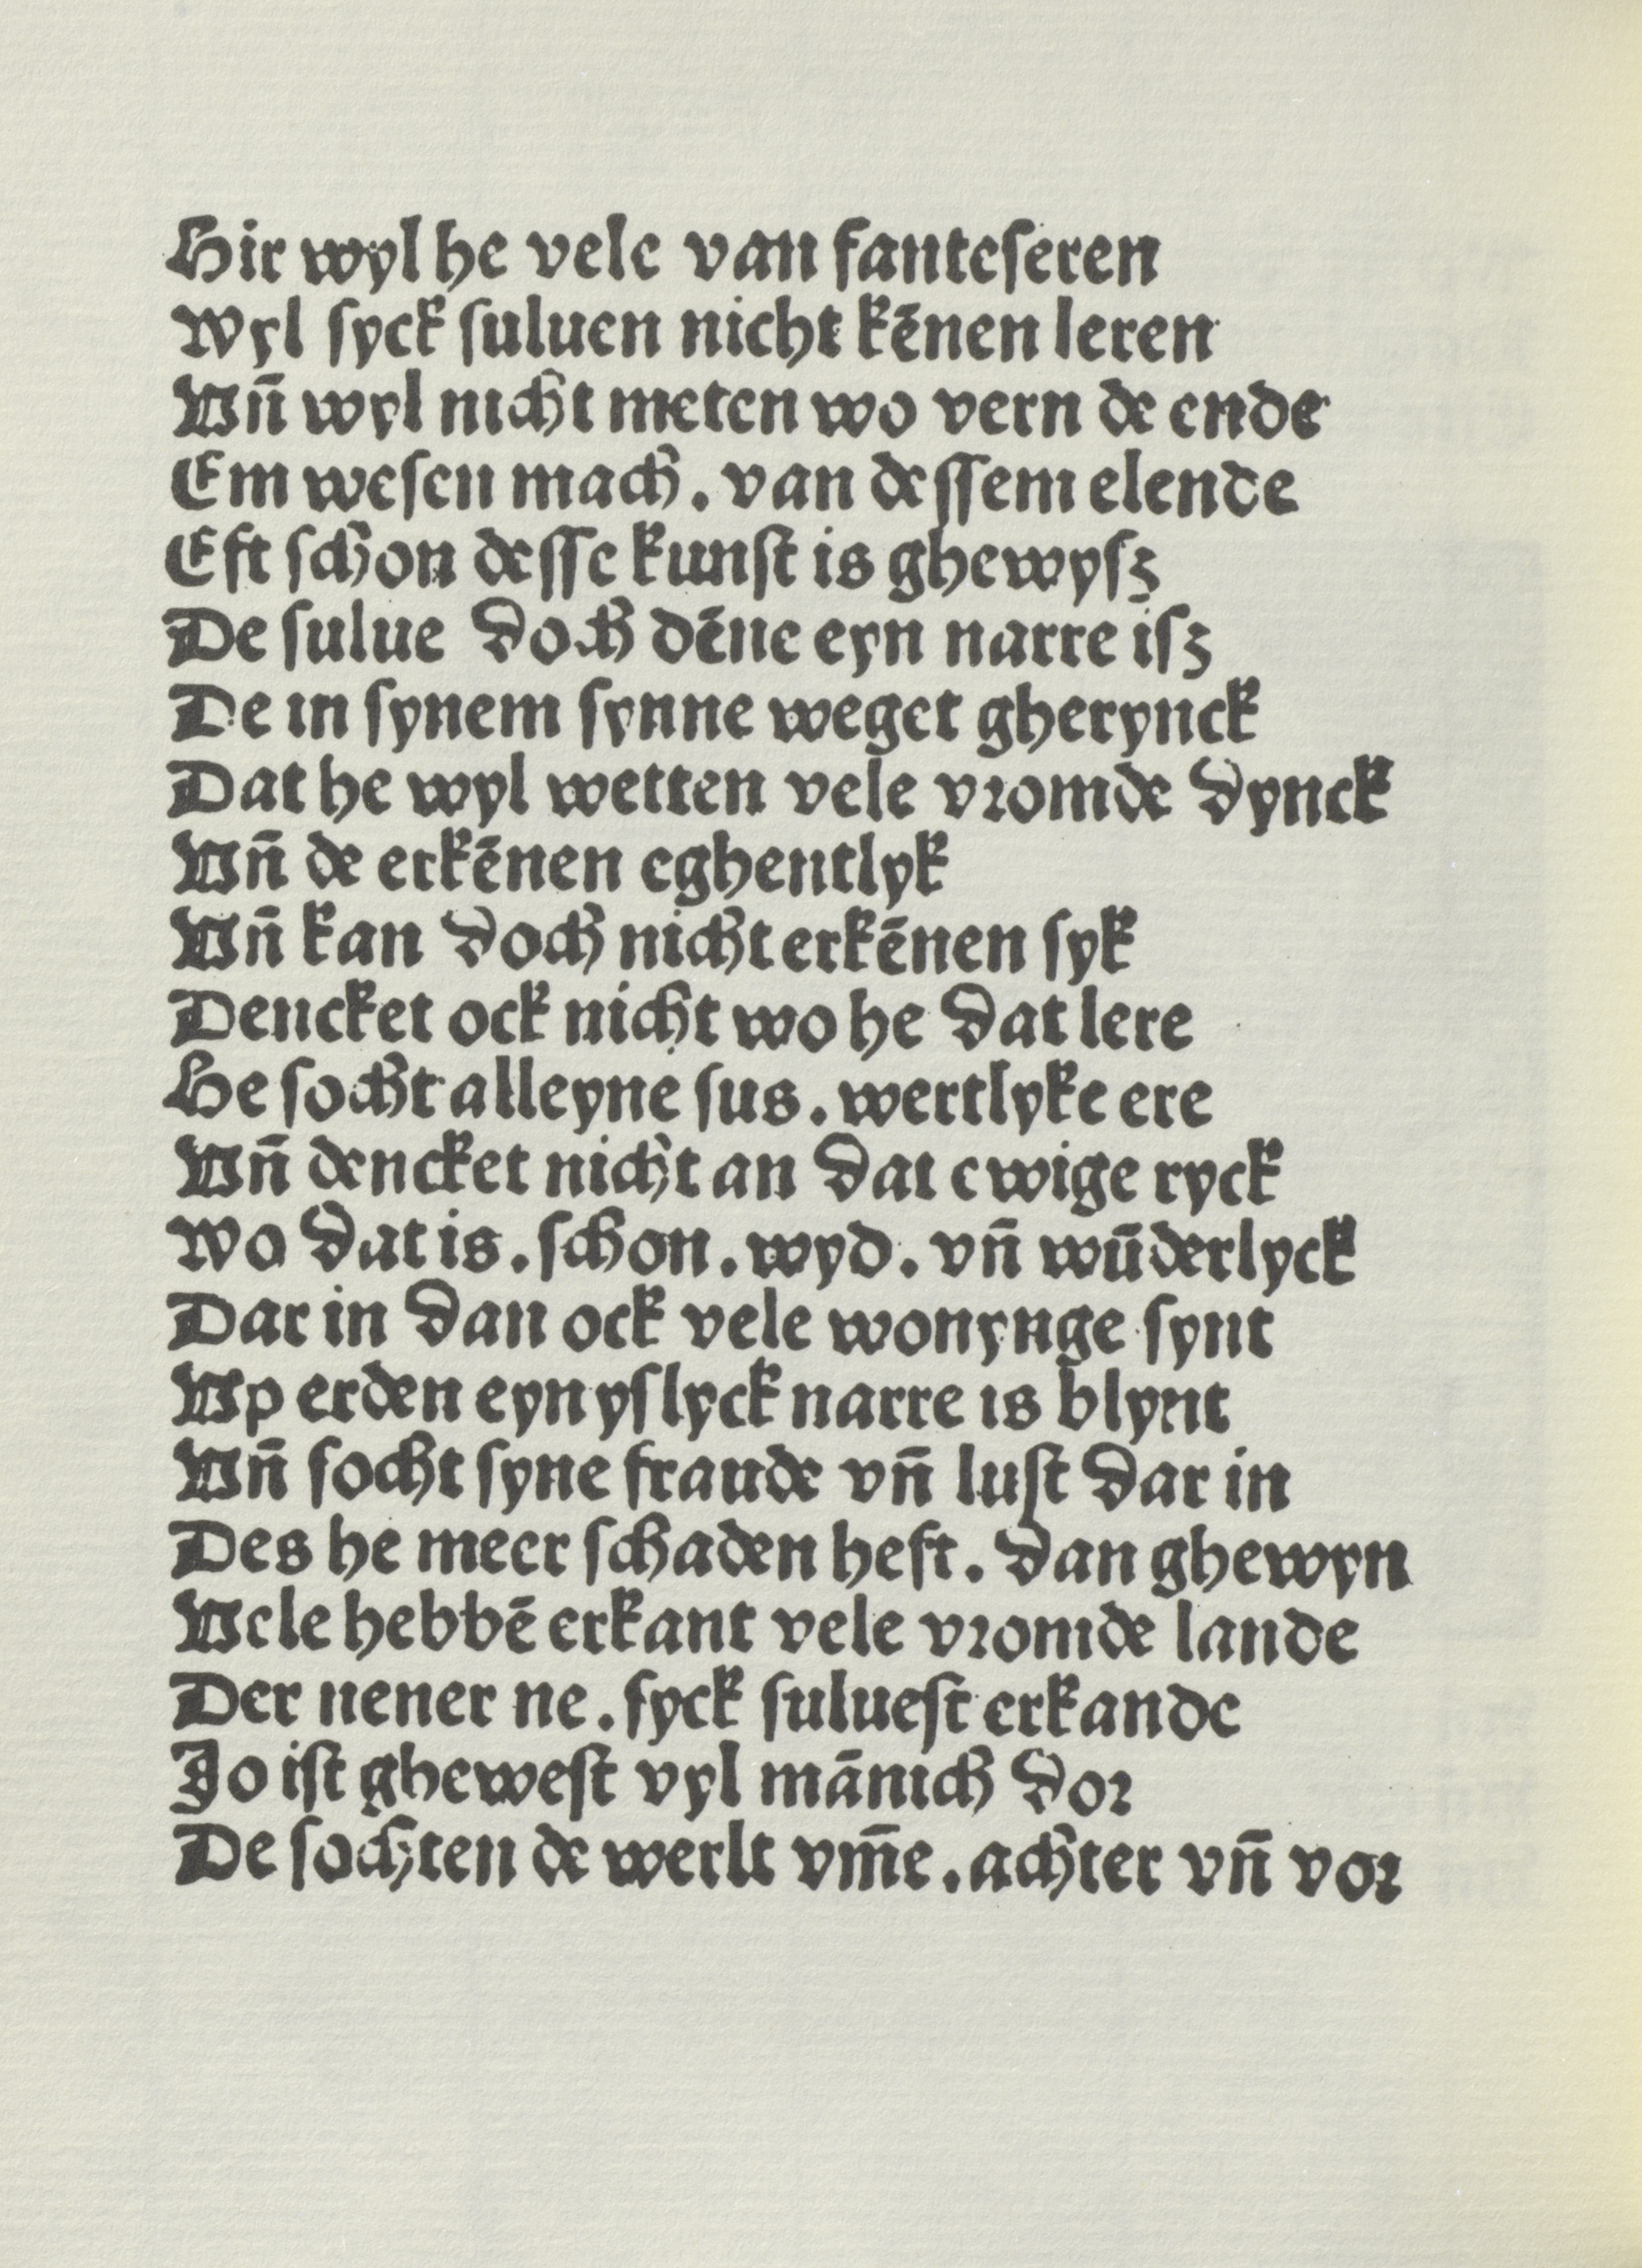 Hir wyl he vele van fanteſeren
Wyl ſyck ſuluen nicht kēnen leren
Vn̄ wyl nicht meten wo vern de ende
Em weſen mach. van deſſem elende
Eft ſchon deſſe kunſt is ghewyſz
De ſulue doch dēne eyn narre iſz
De in ſynem ſynne weget gherynck
Dat he wyl wetten vele vꝛomde dynck
Vn̄ de erkēnen eghentlyk
Vn̄ kan doch nicht erkēnen ſyk
Dencket ock nicht wo he dat lere
He ſocht alleyne ſus. wertlyke ere
Vn̄ dencket nicht an dat ewige ryck
Wo dat is. ſchon. wyd. vn̄ wūderlyck
Dar in dan ock vele wonynge ſynt
Vp erden eyn yſlyck narre is blynt
Vn̄ ſocht ſyne fraude vn̄ luſt dar in
Des he meer ſchaden heft. dan ghewyn
Vele hebbē erkant vele vꝛomde lande
Der nener ne. ſyck ſulueſt erkande
Jo iſt gheweſt vyl mānich doꝛ
De ſochten de werlt vm̄e. achter vn̄ voꝛ